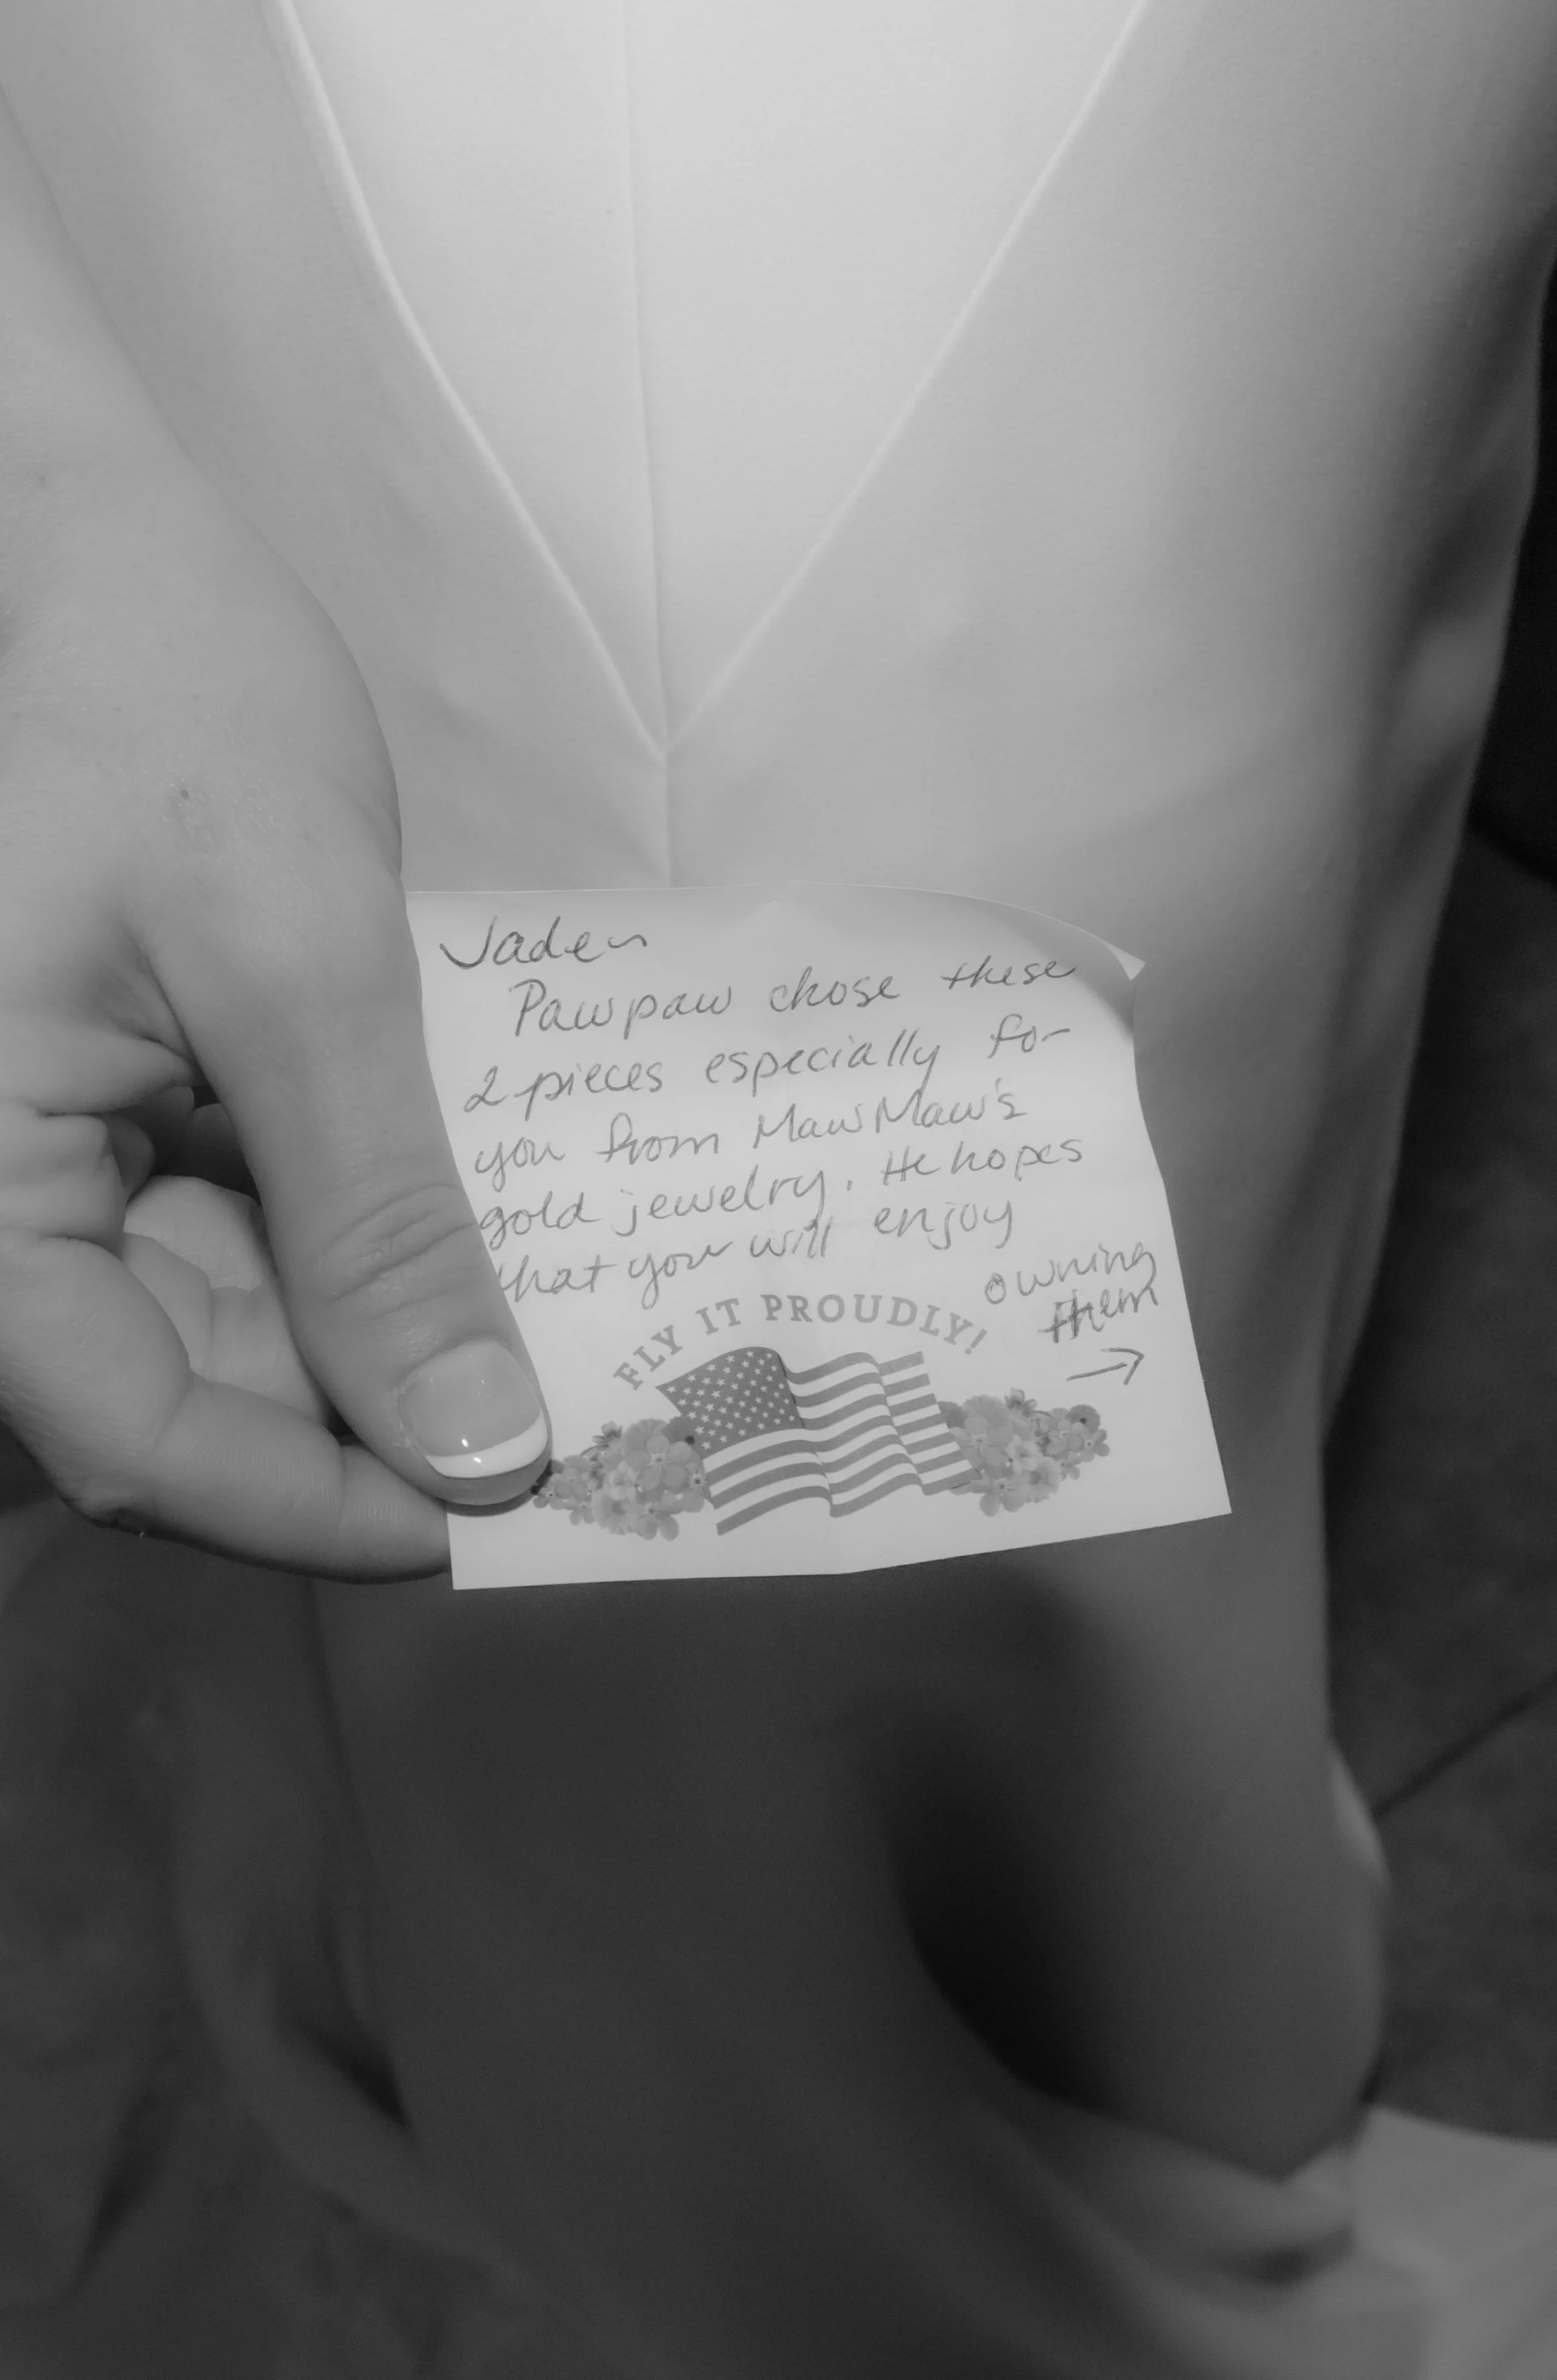 Jaden
Pawpaw chose these
2 pieces especially for
you from MawMaw's
gold jewelry. He hopes
that you will enjoy
owning
them
→
FLY IT PROUDLY!